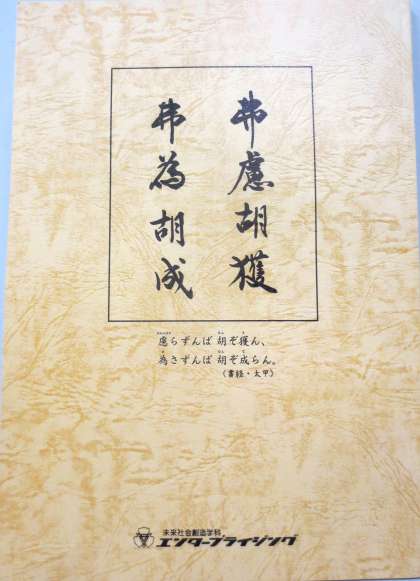 弗慮胡獲
弗為胡成
慮らずんば 胡ぞ獲ん、
為さずんば 胡ぞ成らん。
(書経・太甲)
未来社会創造学科
エンタープライジング